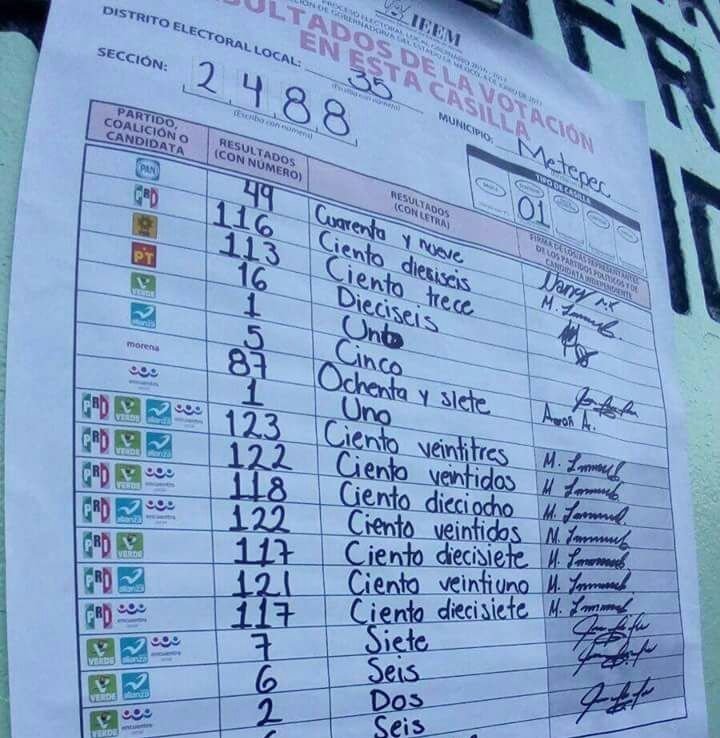 IEEM
PROCESO ELECTORAL LOCAL ORDINARIO 2016 - 2017
ELECCIÓN DE GOBERNADOR/A DEL ESTADO DE MÉXICO, 4 DE JUNIO DE 2017
RESULTADOS DE LA VOTACIÓN
EN ESTA CASILLA
DISTRITO ELECTORAL LOCAL: 35
(Escriba con número)
SECCIÓN: 2488
(Escriba con número)
MUNICIPIO: Metepec
TIPO DE CASILLA
01
PARTIDO, COALICIÓN O CANDIDATA
RESULTADOS (CON NÚMERO)
RESULTADOS (CON LETRA)
FIRMA DE LOS/AS REPRESENTANTES DE LOS PARTIDOS POLÍTICOS Y DE CANDIDATA INDEPENDIENTE
PAN 49 Cuarenta y nueve
PRD 116 Ciento dieciseis
113 Ciento trece
PT 16 Dieciseis
VERDE 1 Uno
alianza 5 Cinco
morena 87 Ochenta y siete
encuentro social 1 Uno Aaron A.
PRD VERDE alianza encuentro social 123 Ciento veintitres
PRD VERDE alianza 122 Ciento veintidos
PRD VERDE encuentro social 118 Ciento dieciocho
PRD alianza encuentro social 122 Ciento veintidos
PRD VERDE 117 Ciento diecisiete
PRD alianza 121 Ciento veintiuno
PRD encuentro social 117 Ciento diecisiete
VERDE alianza encuentro social 7 Siete
VERDE alianza 6 Seis
VERDE encuentro 2 Dos
Seis